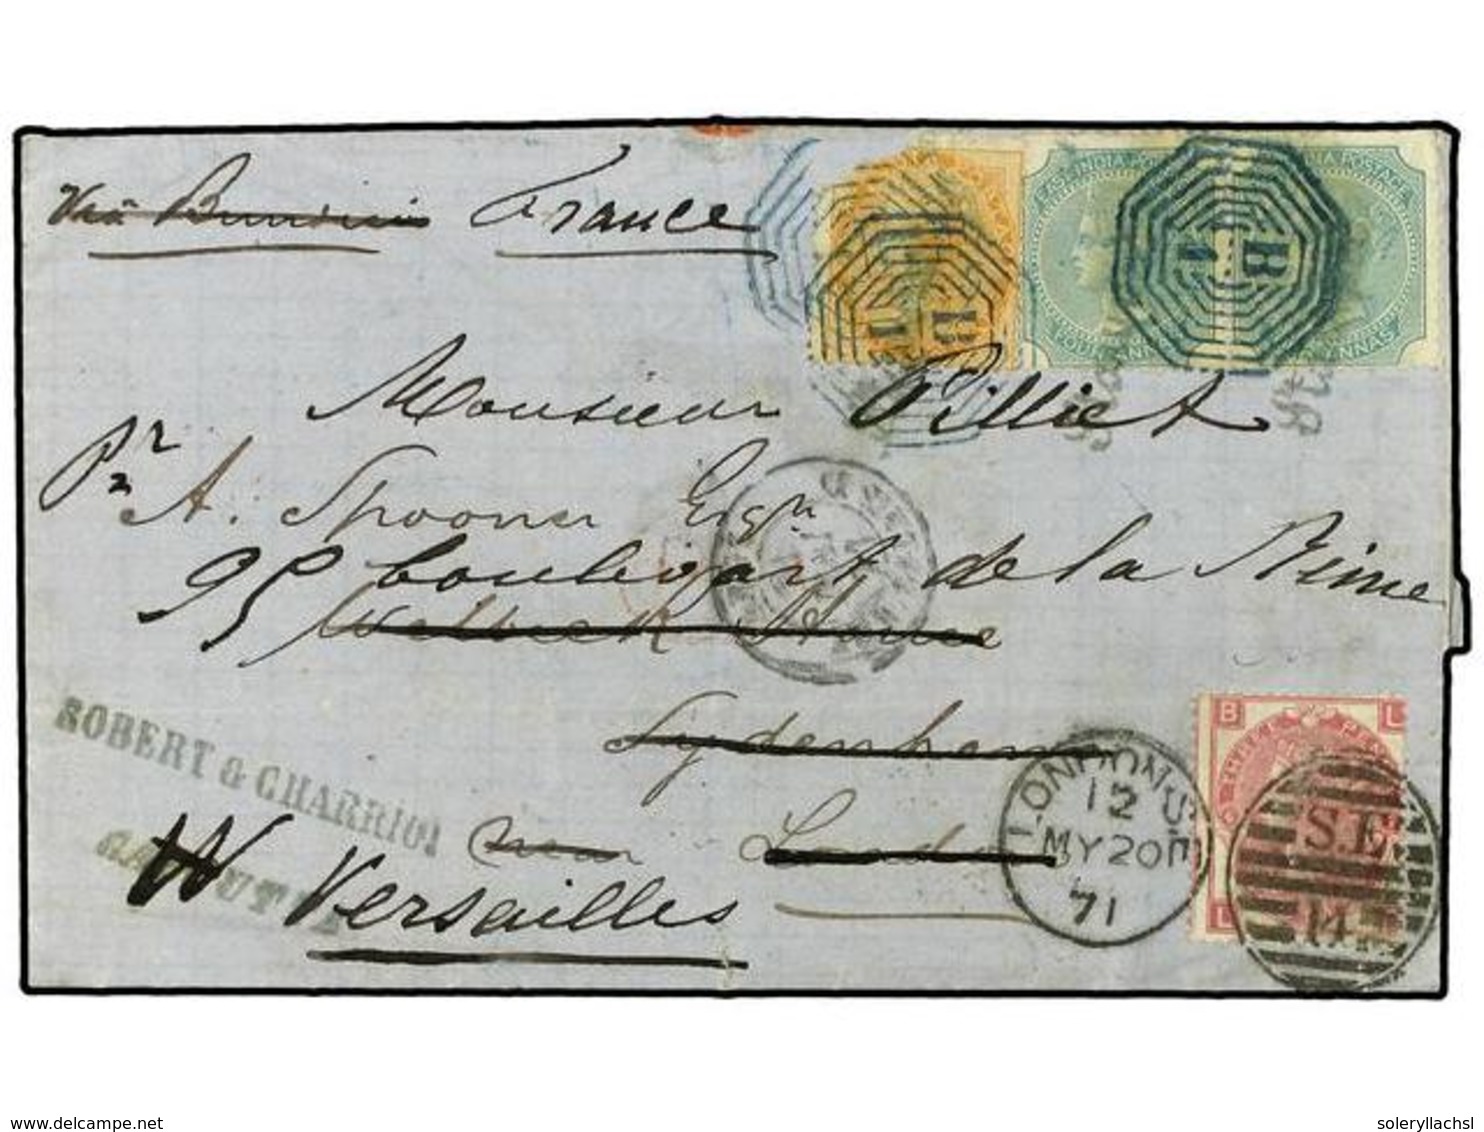 Via Brindisi France
EAST INDIA POSTAGE
B
1
B
1
FOUR ANNAS
Monsieur Pilliet
pr A. Spooner Esqr
95 boulevart de la Reine
Sydenham
near London
Versailles
ROBERT & CHARRIOL
CALCUTTA
LONDON S.E
12
MY 20
71
B L
L
S.E
14
delcampe.net
soleryllachsl